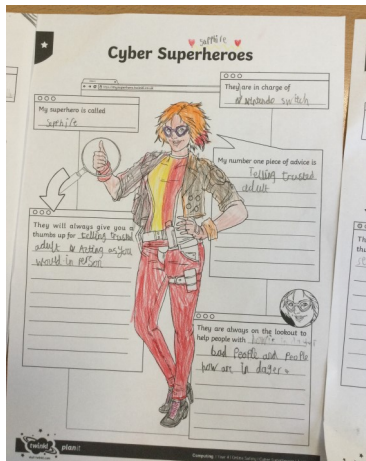 sapphire
Cyber Superheroes
My superhero is called
saphire
They are in charge of
nintendo switch
My number one piece of advice is
Telling trusted
adult
They will always give you a
thumbs up for telling trusted
adult & Acting as you
would in person
They are always on the lookout to
help people with
bad People and People
how are in dager.
twinkl
planit
Computing